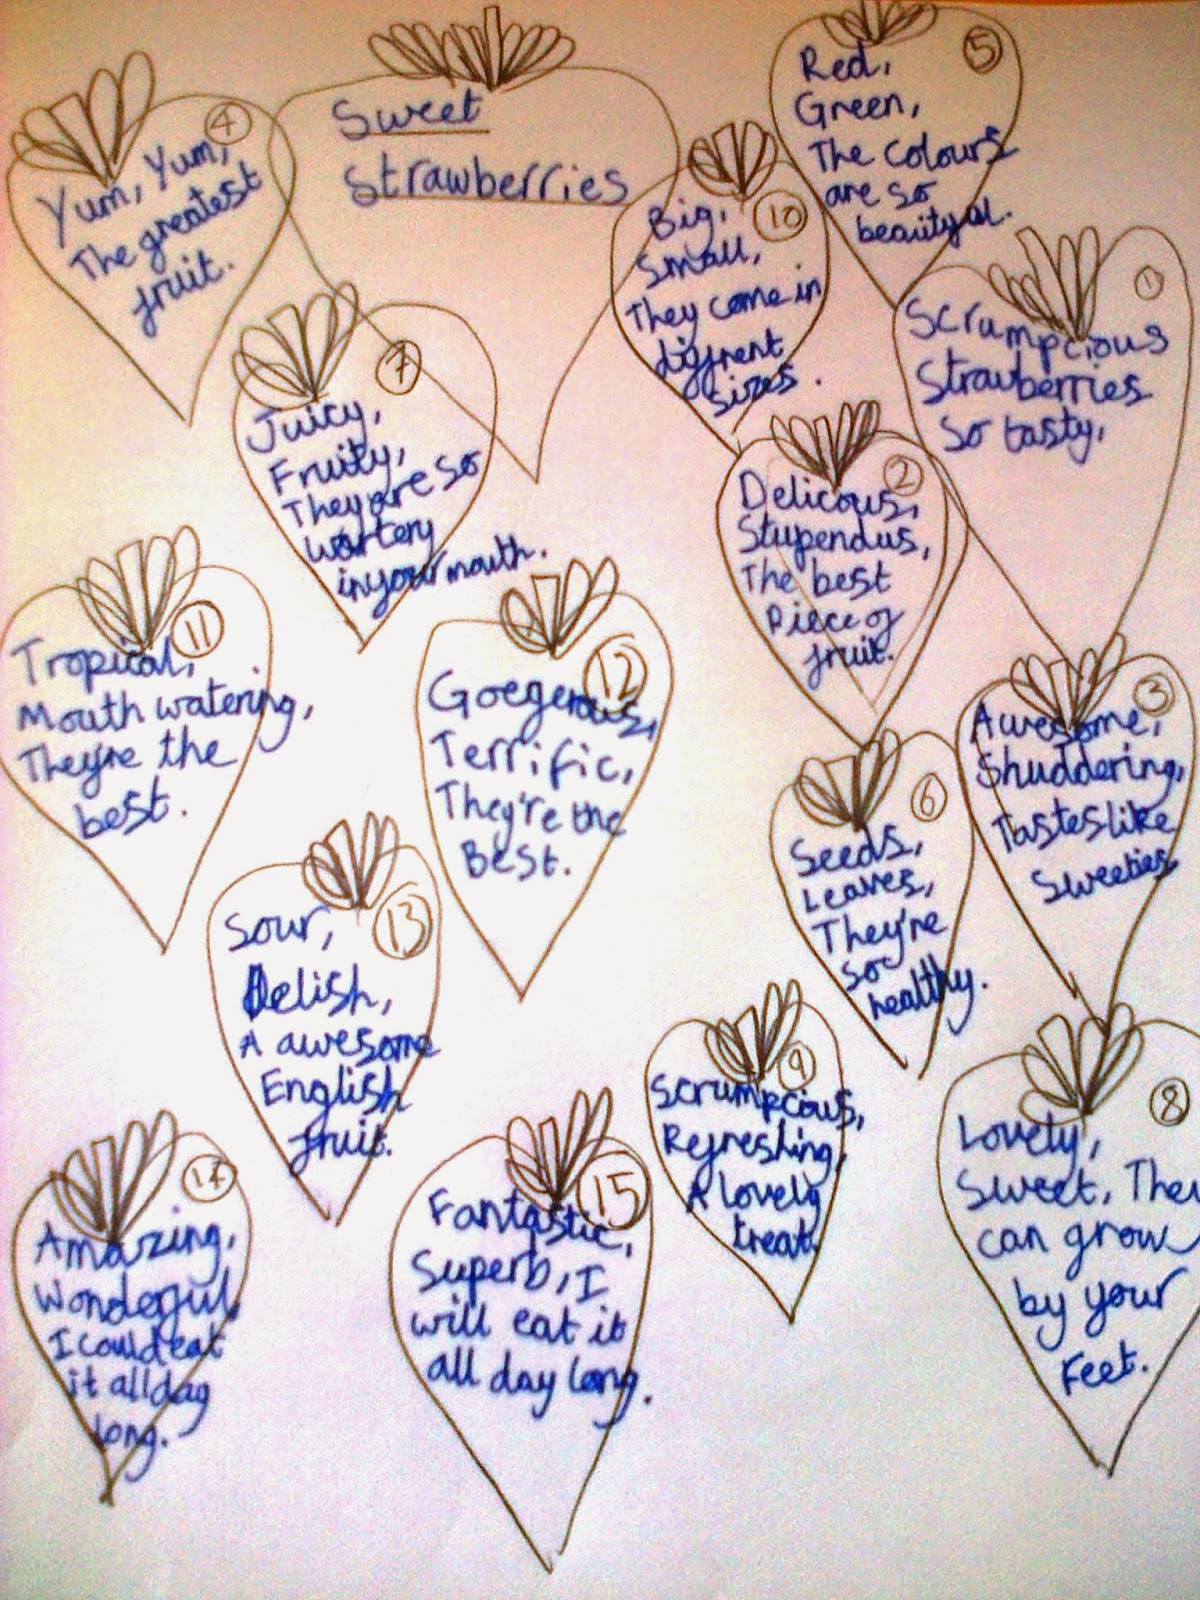 Sweet
Strawberries
1
Scrumpcious
Strawberries
So tasty,
2
Delicous,
Stupendus,
The best
Piece of
fruit.
3
Awesome,
Shuddering,
Tastes like
Sweeties
4
Yum, Yum,
The greatest
fruit.
5
Red,
Green,
The colours
are so
6
Seeds,
Leaves,
They're
so
healthy.
7
Juicy,
Fruity,
They are so
in your mouth.
8
Lovely,
Sweet, They
can grow
by your
Feet.
9
Scrumpcious,
Refreshing,
A lovely
treat.
10
Big,
Small,
They come in
diffrent
sizes.
11
Tropical,
Mouth watering,
They're the
best.
12
Goegerous,
Terrific,
They're the
Best.
13
Sour,
Delish,
A awesome
English
fruit.
14
Amazing,
Wonderful,
I could eat
it all day
long.
15
Fantastic,
Superb, I
will eat it
all day long.